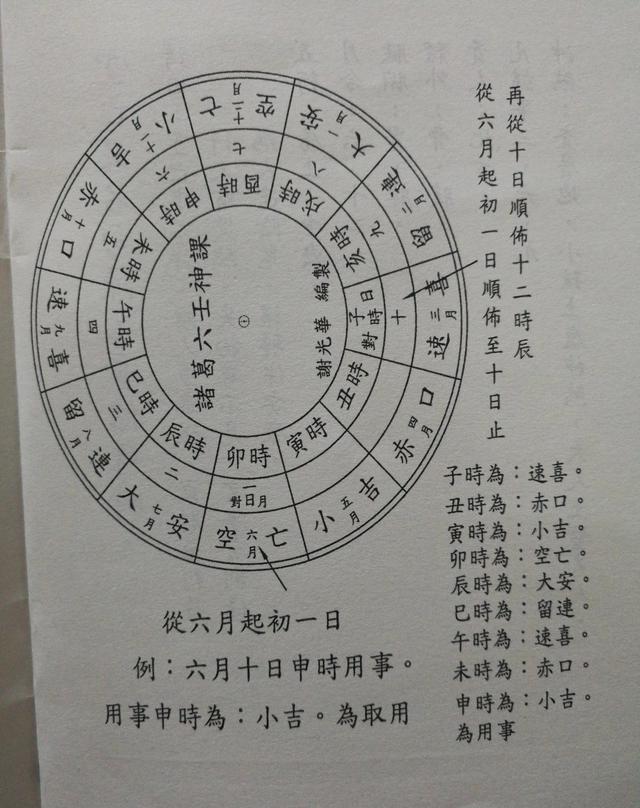 再從十日順佈十二時辰
從六月起初一日順佈至十日止
諸葛六壬神課
謝光華 編製
大一月安
留二月連
速三月喜
赤四月口
小五月吉
空六月亡
大七月安
留八月連
速九月喜
赤十月口
小十一月吉
空十二月亡
一日對月
二
三
四
五
六
七
八
九
十
子時對日
丑時
寅時
卯時
辰時
巳時
午時
未時
申時
酉時
戌時
亥時
子時為：速喜。
丑時為：赤口。
寅時為：小吉。
卯時為：空亡。
辰時為：大安。
巳時為：留連。
午時為：速喜。
未時為：赤口。
申時為：小吉。
為用事
從六月起初一日
例：六月十日申時用事。
用事申時為：小吉。為取用